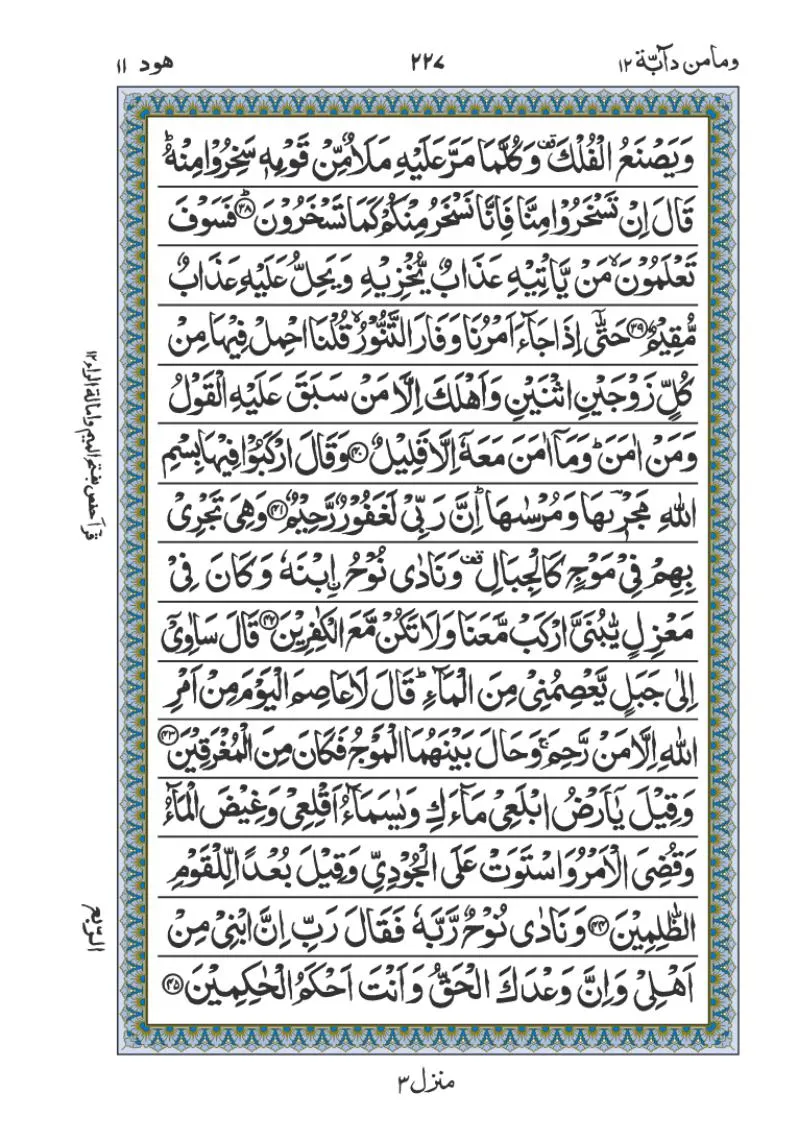 وما من دآبّة ١٢
٢٢٧
هود ١١
وَيَصْنَعُ الْفُلْكَ ۣ وَكُلَّمَا مَرَّ عَلَيْهِ مَلَاٌ مِّنْ قَوْمِهٖ سَخِرُوْا مِنْهُ ؕ
قَالَ اِنْ تَسْخَرُوْا مِنَّا فَاِنَّا نَسْخَرُ مِنْكُمْ كَمَا تَسْخَرُوْنَ ؕ﴿۳۸﴾ فَسَوْفَ
تَعْلَمُوْنَ ۙ مَنْ يَّاْتِيْهِ عَذَابٌ يُّخْزِيْهِ وَيَحِلُّ عَلَيْهِ عَذَابٌ
مُّقِيْمٌ ﴿۳۹﴾ حَتّٰۤى اِذَا جَآءَ اَمْرُنَا وَفَارَ التَّنُّوْرُ ۙ قُلْنَا احْمِلْ فِيْهَا مِنْ
كُلٍّ زَوْجَيْنِ اثْنَيْنِ وَاَهْلَكَ اِلَّا مَنْ سَبَقَ عَلَيْهِ الْقَوْلُ
وَمَنْ اٰمَنَ ؕ وَمَاۤ اٰمَنَ مَعَهٗۤ اِلَّا قَلِيْلٌ ﴿۴۰﴾ وَقَالَ ارْكَبُوْا فِيْهَا بِسْمِ
اللّٰهِ مَجْرٖىهَا وَمُرْسٰىهَا ؕ اِنَّ رَبِّىْ لَغَفُوْرٌ رَّحِيْمٌ ﴿۴۱﴾ وَهِىَ تَجْرِىْ
بِهِمْ فِىْ مَوْجٍ كَالْجِبَالِ ۣ وَنَادٰى نُوْحُ اۨبْنَهٗ وَكَانَ فِىْ
مَعْزِلٍ يّٰبُنَىَّ ارْكَبْ مَّعَنَا وَلَا تَكُنْ مَّعَ الْكٰفِرِيْنَ ﴿۴۲﴾ قَالَ سَاٰوِىْۤ
اِلٰى جَبَلٍ يَّعْصِمُنِىْ مِنَ الْمَآءِ ؕ قَالَ لَا عَاصِمَ الْيَوْمَ مِنْ اَمْرِ
اللّٰهِ اِلَّا مَنْ رَّحِمَ ۚ وَحَالَ بَيْنَهُمَا الْمَوْجُ فَكَانَ مِنَ الْمُغْرَقِيْنَ ﴿۴۳﴾
وَقِيْلَ يٰۤاَرْضُ ابْلَعِىْ مَآءَكِ وَيٰسَمَآءُ اَقْلِعِىْ وَغِيْضَ الْمَآءُ
وَقُضِىَ الْاَمْرُ وَاسْتَوَتْ عَلَى الْجُوْدِىِّ وَقِيْلَ بُعْدًا لِّلْقَوْمِ
الظّٰلِمِيْنَ ﴿۴۴﴾ وَنَادٰى نُوْحٌ رَّبَّهٗ فَقَالَ رَبِّ اِنَّ ابْنِىْ مِنْ
اَهْلِىْ وَاِنَّ وَعْدَكَ الْحَقُّ وَاَنْتَ اَحْكَمُ الْحٰكِمِيْنَ ﴿۴۵﴾
قرآ حفص بفتح الميم وامالة الراء ١٢
الرّبع
منزل ٣